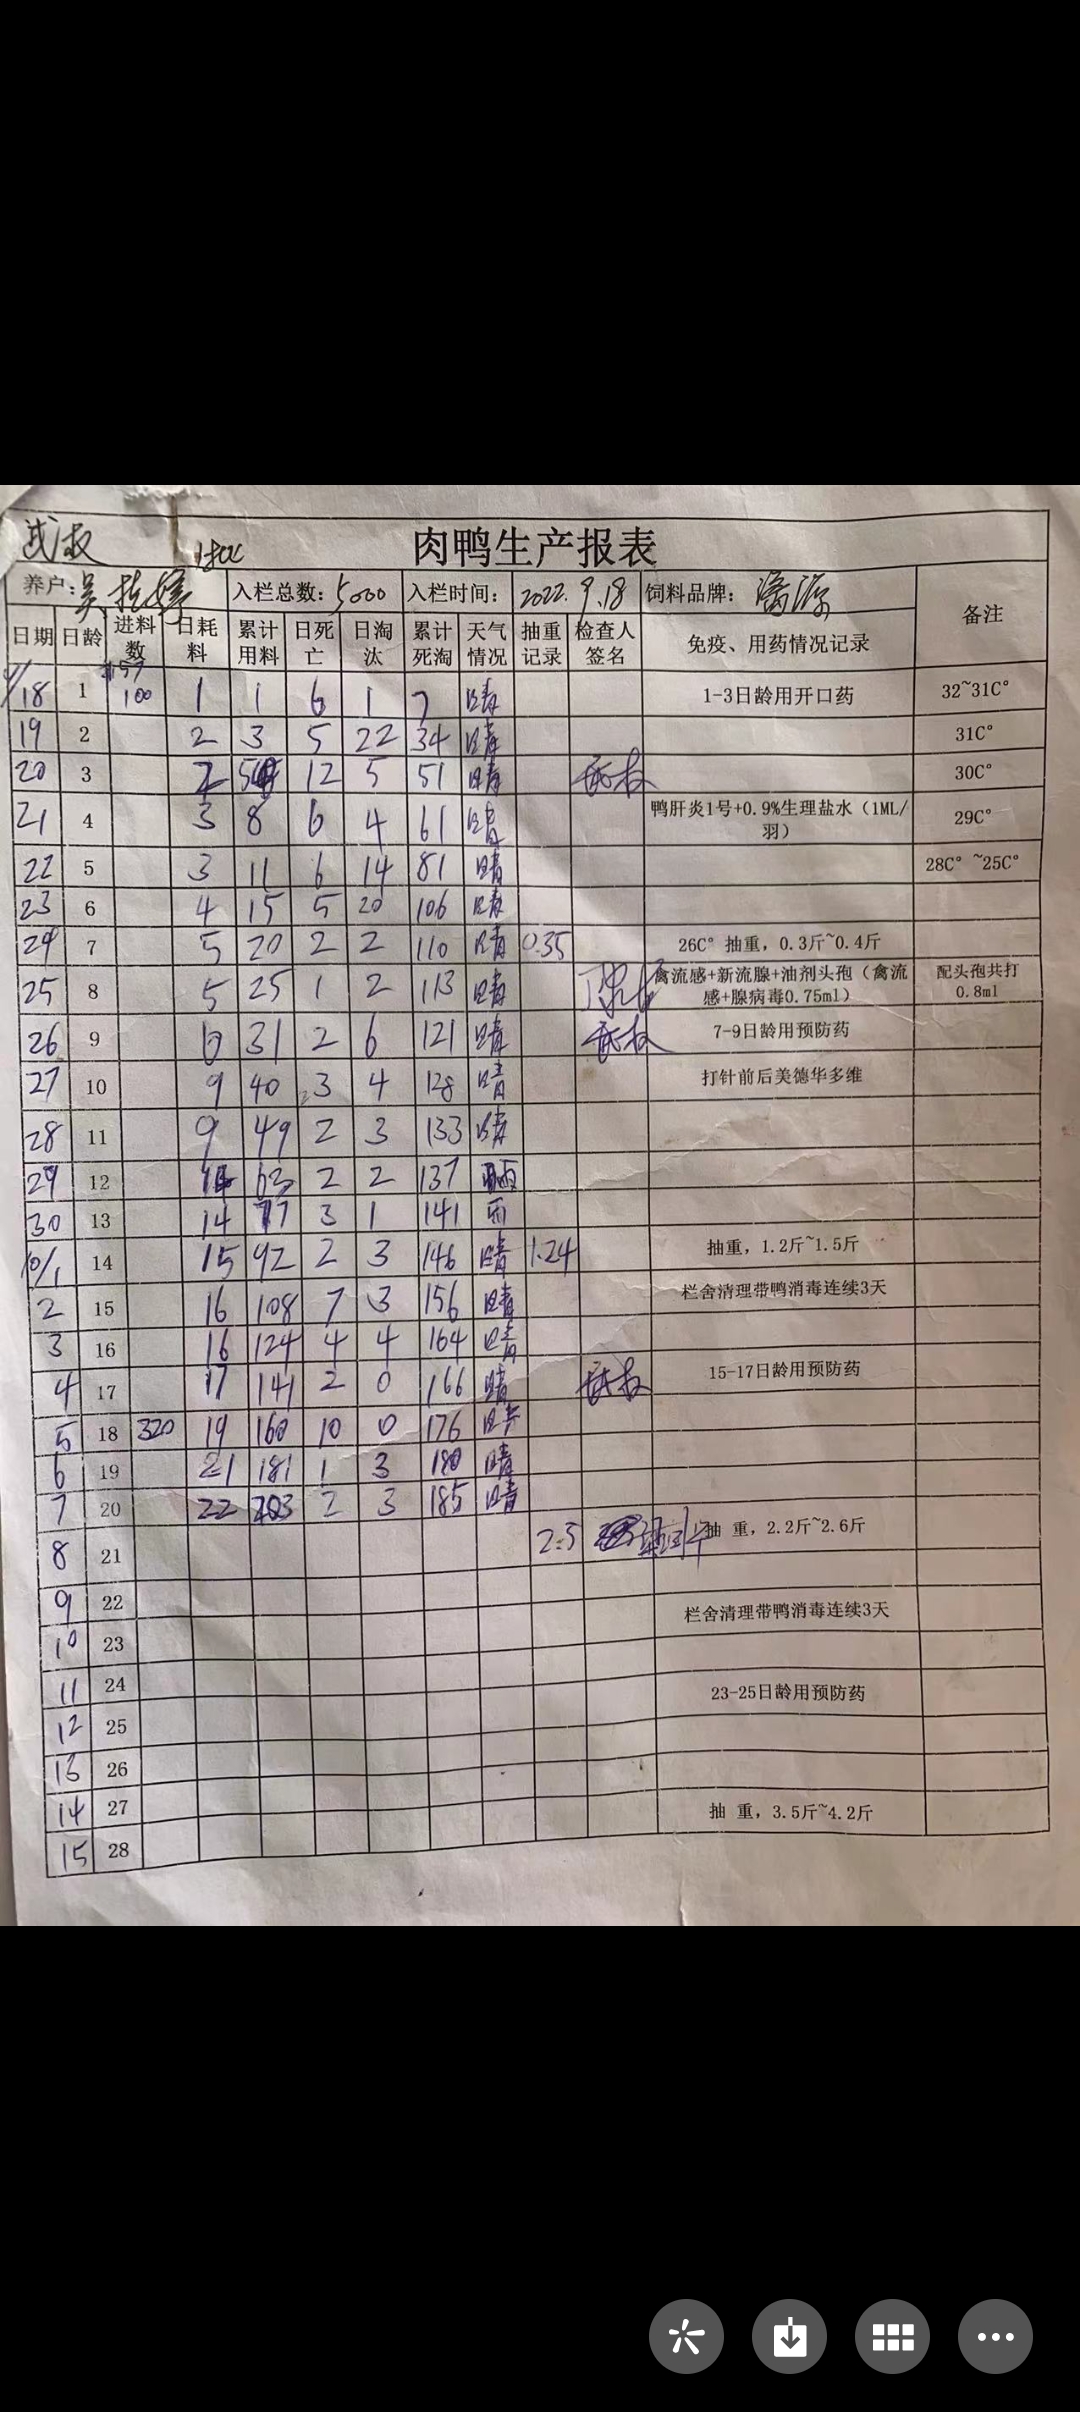 肉鸭生产报表
养户: 吴 入栏总数: 5000 入栏时间: 2022.9.18 饲料品牌: 备注
日期 日龄 进料数 日耗料 累计用料 日死亡 日淘汰 累计死淘 天气情况 抽重记录 检查人签名 免疫、用药情况记录
9/18 1 100 1 1 6 1 7 晴 1-3日龄用开口药 32~31C°
19 2 2 3 5 22 34 晴 31C°
20 3 2 5 12 5 51 晴 30C°
21 4 3 8 6 4 61 晴 鸭肝炎1号+0.9%生理盐水（1ML/羽） 29C°
22 5 3 11 6 14 81 晴 28C°~25C°
23 6 4 15 5 20 106 晴
24 7 5 20 2 2 110 晴 0.35 26C° 抽重，0.3斤~0.4斤
25 8 5 25 1 2 113 晴 禽流感+新流腺+油剂头孢（禽流感+腺病毒0.75ml） 配头孢共打0.8ml
26 9 6 31 2 6 121 晴 7-9日龄用预防药
27 10 9 40 3 4 128 晴 打针前后美德华多维
28 11 9 49 2 3 133 晴
29 12 14 63 2 2 137 雨
30 13 14 77 3 1 141 雨
10/1 14 15 92 2 3 146 晴 1.24 抽重，1.2斤~1.5斤
2 15 16 108 7 3 156 晴 栏舍清理带鸭消毒连续3天
3 16 16 124 4 4 164 晴
4 17 17 141 2 0 166 晴 15-17日龄用预防药
5 18 320 19 160 10 0 176 晴
6 19 21 181 1 3 180 晴
7 20 22 203 2 3 185 晴
8 21 2.5 抽 重，2.2斤~2.6斤
9 22 栏舍清理带鸭消毒连续3天
10 23
11 24 23-25日龄用预防药
12 25
13 26
14 27 抽 重，3.5斤~4.2斤
15 28